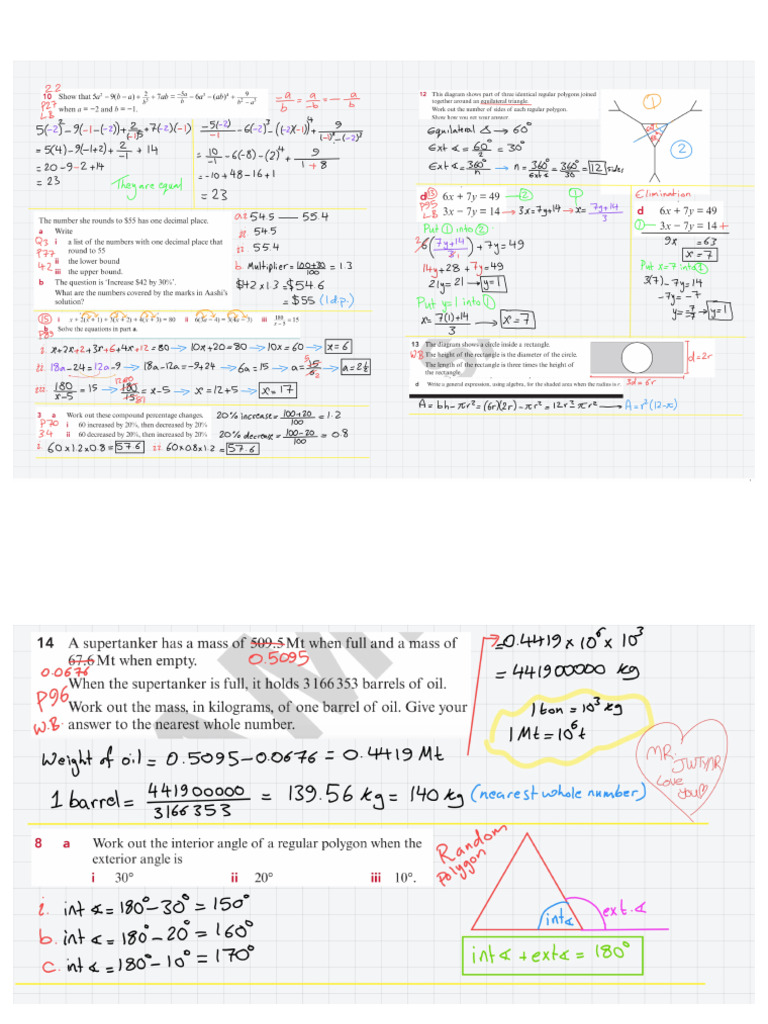 22
10 Show that 5a² − 9(b − a) + 2/b³ + 7ab = −5a/b − 6a³ − (ab)⁴ + 9/(b² − a³)
P27 when a = −2 and b = −1.
L.B
−a/b = a/−b = − a/b
5(-2)²-9(-1-(-2))+2/(-1)³+7(-2)(-1)
= 5(4)-9(-1+2)+2/-1+14
= 20-9-2+14
= 23
They are equal
-5(-2)/-1-6(-2)³-((-2)(-1))⁴+9/((-1)²-(-2)³)
= 10/-1-6(-8)-(2)⁴+9/(1+8)
= -10+48-16+1
= 23
The number she rounds to $55 has one decimal place.
a Write
Q3 i a list of the numbers with one decimal place that
P77 round to 55
42 ii the lower bound
iii the upper bound.
b The question is 'Increase $42 by 30%'.
What are the numbers covered by the marks in Aashi's
solution?
a: 54.5 — 55.4
ii 54.5
iii 55.4
b. Multiplier = 100+30/100 = 1.3
$42 x 1.3 = $54.6
= $55 (1 d.p.)
15 i x + 2(x + 1) + 3(x + 2) + 4(x + 3) = 80 ii 6(3x − 4) = 3(4x − 3) iii 180/(x−5) = 15
P89 b Solve the equations in part a.
i. x+2x+2+3x+6+4x+12=80 → 10x+20=80 → 10x=60 → x=6
ii 18a-24=12a-9 → 18a-12a=-9+24 → 6a=15 → a=15/6 → a=2½
iii 180/x-5=15 → 180/15=x-5 → x=12+5 → x=17
3 a Work out these compound percentage changes.
P70 i 60 increased by 20%, then decreased by 20%
34 ii 60 decreased by 20%, then increased by 20%
20% increase = 100+20/100 = 1.2
20% decrease = 100-20/100 = 0.8
i. 60x1.2x0.8 = 57.6 ii. 60x0.8x1.2 = 57.6
12 This diagram shows part of three identical regular polygons joined
together around an equilateral triangle.
Work out the number of sides of each regular polygon.
Show how you got your answer
Equilateral △ → 60°
Ext ∢ = 60°/2 = 30°
Ext ∢ = 360°/n → n = 360°/Ext ∢ = 360°/30 = 12 sides
1
2
d 13 6x + 7y = 49 → 2
P95
L.B 3x − 7y = 14 → 3x = 7y+14 → x = 7y+14/3
1
Put 1 into 2
6(7y+14/3)+7y=49
14y+28+7y=49
21y=21 → y=1
Put y=1 into 1
x= 7(1)+14/3 → x=7
Elimination
d 6x + 7y = 49
1 3x − 7y = 14 +
9x = 63
x = 7
Put x=7 into 1
3(7)-7y=14
-7y=-7
y=-7/-7 → y=1
13 The diagram shows a circle inside a rectangle.
W.B The height of the rectangle is the diameter of the circle.
The length of the rectangle is three times the height of
the rectangle.
d Write a general expression, using algebra, for the shaded area when the radius is r
d=2r
3d=6r
A = bh-πr² = (6r)(2r)-πr² = 12r²-πr² → A=r²(12-π)
14 A supertanker has a mass of 509.5 Mt when full and a mass of
0.5095
67.6 Mt when empty.
0.0676
When the supertanker is full, it holds 3 166 353 barrels of oil.
P96 Work out the mass, in kilograms, of one barrel of oil. Give your
W.B. answer to the nearest whole number.
=0.4419 x 10⁶ x 10³
= 441900000 kg
1 ton = 10³ kg
1 Mt = 10⁶ t
Weight of oil = 0.5095-0.0676 = 0.4419 Mt
1 barrel = 441900000/3166353 = 139.56 kg = 140 kg (nearest whole number)
MR.
Love
you
8 a Work out the interior angle of a regular polygon when the
exterior angle is
i 30° ii 20° iii 10°.
i. int ∢ = 180°-30° = 150°
b. int ∢ = 180°-20° = 160°
c. int ∢ = 180°-10° = 170°
Random
Polygon
int ∢
ext. ∢
int ∢ + ext ∢ = 180°